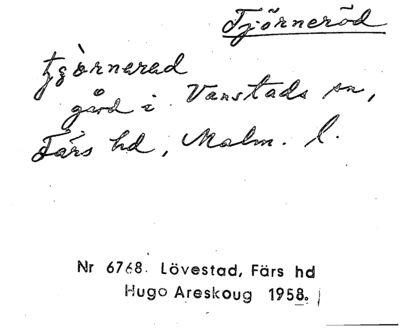 Tjörneröd
tjörnerad
gård i Vanstads sn,
Färs hd, Malm. l.
Nr 6768. Lövestad, Färs hd
Hugo Areskoug 1958.